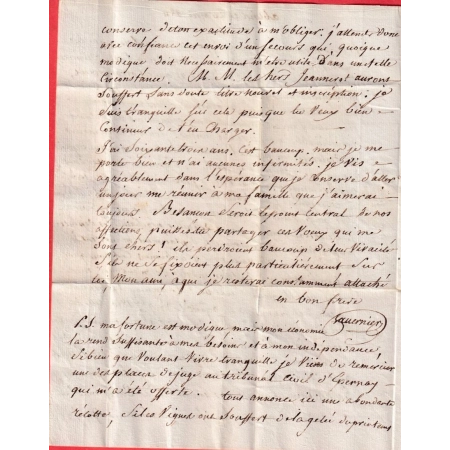 conserve de ton exactitude à m'obliger. j'attends donc
avec confiance cet envoi d'un secours qui, quoique
modique, doit necessairement m'etre utile dans une telle
circonstance. M. M. les hers Jeanneret auront
souffert sans doute leur nouvelle inscription. je
suis tranquille sur cela puisque tu veux bien
continuer de t'en charger.
J'ai soixante trois ans. C'est beaucoup. mais je me
porte bien et n'ai aucunes infirmités. je vis
agréablement dans l'esperance que je conserve d'aller
un jour me reunir à ma famille que j'aimerai
toujours. Besancon seroit le point central de nos
affections, puissiez tu partager ces voeux qui me
sont chers! ils perdroient beaucoup de leur vivacité
s'ils ne se fixoient plus particulièrement sur
toi mon ami, à qui je resterai constamment attaché
en bon frere
tavernier
P.S. ma fortune est modique, mais mon economie
la rend suffisante à mes besoins et à mon independance.
si bien que voulant vivre tranquille je viens de remercier
une des places de juge au tribunal civil d'Epernay
qui m'a été offerte. tout annonce ici une abondante
récolte, si les vignes ont souffert de la gelée du printems